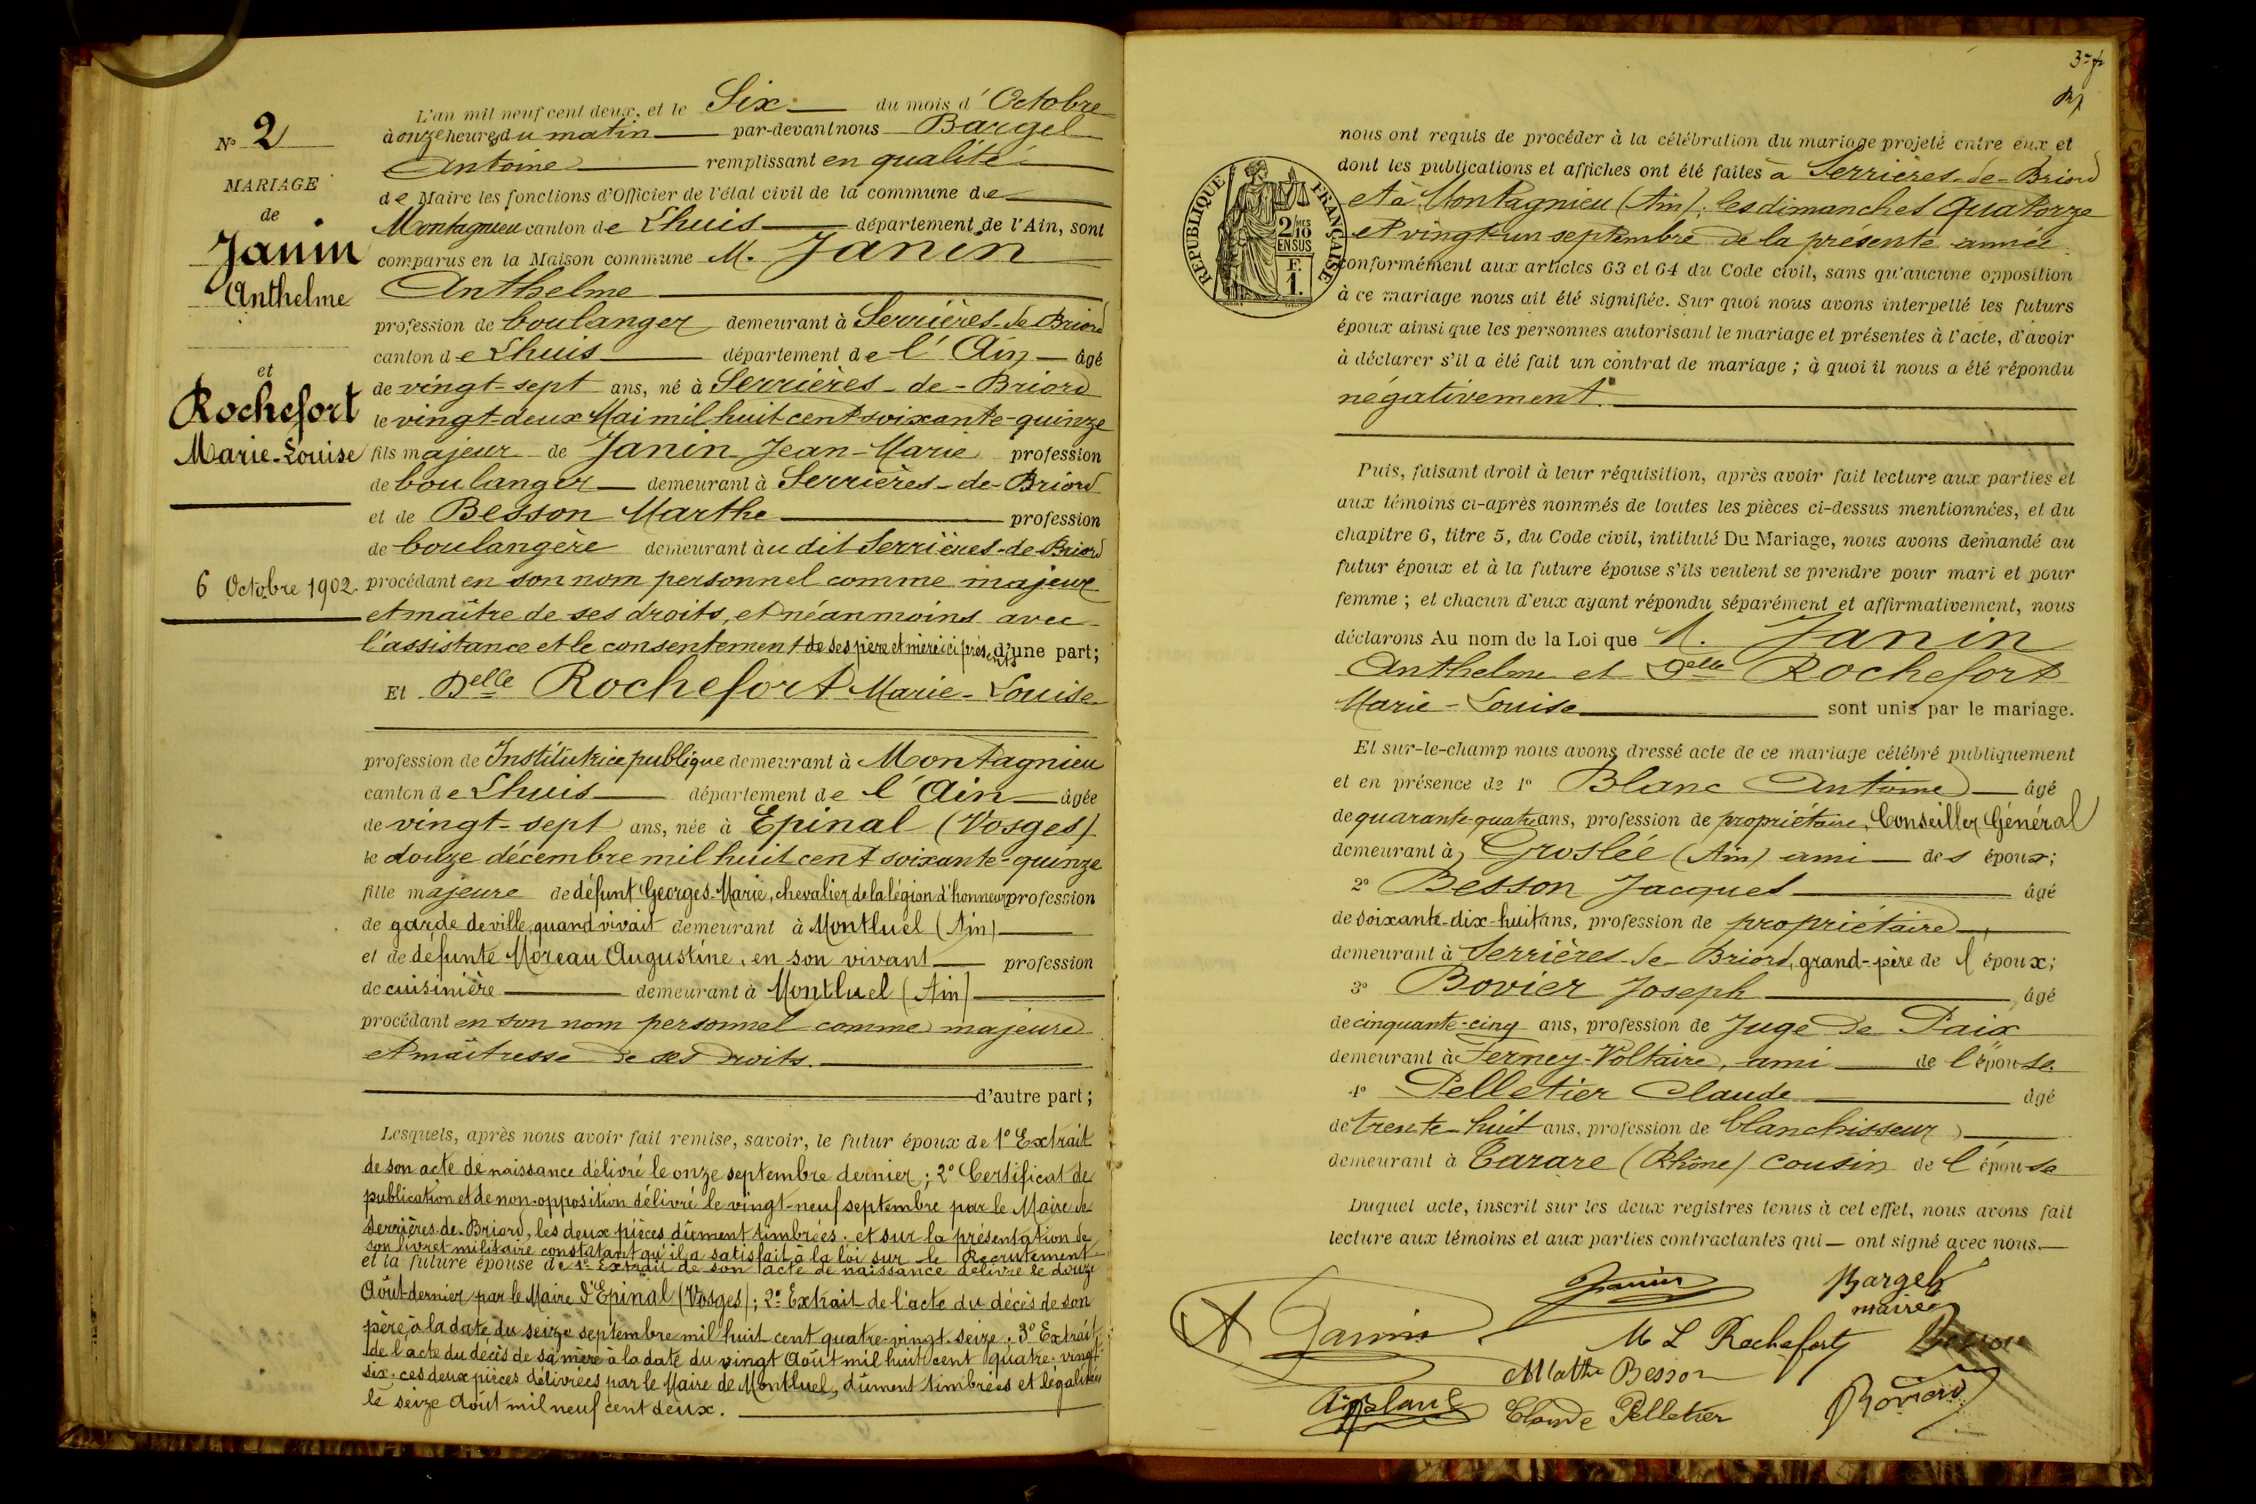 N° 2
MARIAGE
de
Janin
Anthelme
et
Rochefort
Marie-Louise
6 Octobre 1902.
L'an mil neuf cent deux, et le Six du mois d' Octobre
à onze heures du matin par-devant nous Bargel
Antoine remplissant en qualité
de Maire les fonctions d'Officier de l'état civil de la commune de
Montagnieu canton de Lhuis département de l'Ain, sont
comparus en la Maison commune M. Janin
Anthelme
profession de boulanger demeurant à Serrières-de-Briord
canton de Lhuis département de l'Ain âgé
de vingt-sept ans, né à Serrières-de-Briord
le vingt-deux Mai mil huit cent soixante-quinze
fils majeur de Janin Jean-Marie profession
de boulanger demeurant à Serrières-de-Briord
et de Besson Marthe profession
de boulangère demeurant à u dit Serrières-de-Briord
procédant en son nom personnel comme majeur
et maître de ses droits, et néanmoins avec
l'assistance et le consentement de ses père et mère ici présents d'une part;
Et Delle Rochefort Marie-Louise
profession de Institutrice publique demeurant à Montagnieu
canton de Lhuis département de l'Ain âgée
de vingt-sept ans, née à Epinal (Vosges)
le douze décembre mil huit cent soixante-quinze
fille majeure de défunt Georges-Marie, chevalier de la légion d'honneur profession
de garde de ville, quand vivait demeurant à Montluel (Ain)
et de défunte Moreau Augustine, en son vivant profession
de cuisinière demeurant à Montluel (Ain)
procédant en son nom personnel comme majeure
et maîtresse de ses droits.
d'autre part;
Lesquels, après nous avoir fait remise, savoir, le futur époux de 1° Extrait
de son acte de naissance délivré le onze septembre dernier; 2° Certificat de
publication et de non-opposition délivré le vingt-neuf septembre par le Maire de
Serrières-de-Briord, les deux pièces dûment timbrées. et sur la présentation de
son livret militaire constatant qu'il a satisfait à la loi sur le Recrutement
et la future épouse de 1° Extrait de son acte de naissance délivré le douze
Août dernier par le Maire d'Epinal (Vosges); 2° Extrait de l'acte du décès de son
père à la date du seize septembre mil huit cent quatre-vingt-seize; 3° Extrait
de l'acte du décès de sa mère à la date du vingt Août mil huit cent quatre-vingt
six; ces deux pièces délivrées par le Maire de Montluel, dûment timbrées et légalisées
le seize Août mil neuf cent deux.
nous ont requis de procéder à la célébration du mariage projeté entre eux et
dont les publications et affiches ont été faites à Serrières-de-Briord
et à Montagnieu (Ain), les dimanches quatorze
et vingt-un septembre de la présente année
conformément aux articles 63 et 64 du Code civil, sans qu'aucune opposition
à ce mariage nous ait été signifiée. Sur quoi nous avons interpellé les futurs
époux ainsi que les personnes autorisant le mariage et présentes à l'acte, d'avoir
à déclarer s'il a été fait un contrat de mariage; à quoi il nous a été répondu
négativement.
RÉPUBLIQUE FRANÇAISE
2/10 EN SUS
F.
1.
Puis, faisant droit à leur réquisition, après avoir fait lecture aux parties et
aux témoins ci-après nommés de toutes les pièces ci-dessus mentionnées, et du
chapitre 6, titre 5, du Code civil, intitulé Du Mariage, nous avons demandé au
futur époux et à la future épouse s'ils veulent se prendre pour mari et pour
femme; et chacun d'eux ayant répondu séparément et affirmativement, nous
déclarons Au nom de la Loi que M. Janin
Anthelme et Delle Rochefort
Marie-Louise sont unis par le mariage.
Et sur-le-champ nous avons dressé acte de ce mariage célébré publiquement
et en présence de 1° Blanc Antoine âgé
de quarante-quatre ans, profession de propriétaire, Conseiller Général
demeurant à Groslée (Ain) ami des époux;
2° Besson Jacques âgé
de soixante-dix-huit ans, profession de propriétaire
demeurant à Serrières-de-Briord, grand-père de l'époux;
3° Bovier Joseph âgé
de cinquante-cinq ans, profession de Juge de Paix
demeurant à Ferney-Voltaire, ami de l'épouse
4° Pelletier Claude âgé
de trente-huit ans, profession de blanchisseur
demeurant à Tarare (Rhône) cousin de l'épouse
Duquel acte, inscrit sur les deux registres tenus à cet effet, nous avons fait
lecture aux témoins et aux parties contractantes qui ont signé avec nous.
Janin
Bargel
maire
Janin
M L Rochefort
Besson
Marthe Besson
A. Blanc
Claude Pelletier
Bovier